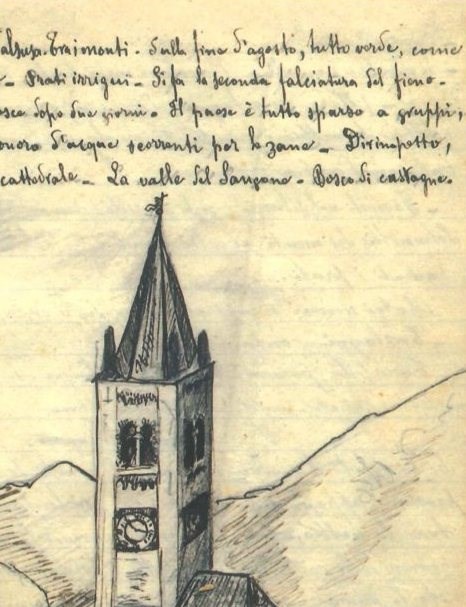 alsusa. Trajmonti. Sulla fine d'agosto, tutto verde, come
- Prati irrigui - Si fa la seconda falciatura del fieno -
osca dopo due giorni - Il paese è tutto sparso a gruppi,
onoro d'acque scorrenti per le zane - Dirimpetto,
cattedrale - La valle del Sangone - Bosco di castagne.